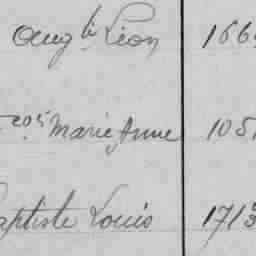 Aug^te Léon 166
çois Marie Anne 105
aptiste Louis 1713